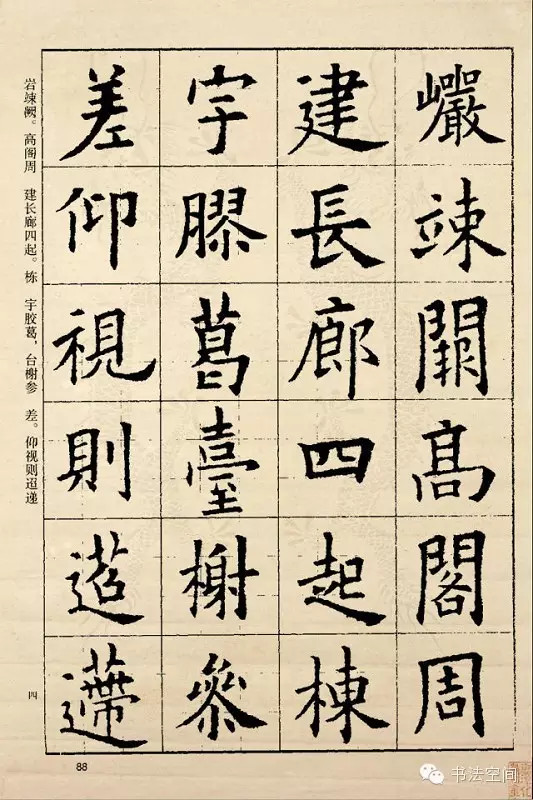 巗竦闕髙閣周
建長廊四起棟
宇膠葛臺榭參
差仰視則迢遰
岩竦阙。高阁周 建长廊四起。栋 宇胶葛，台榭参 差。仰视则迢递
四
88
书法空间